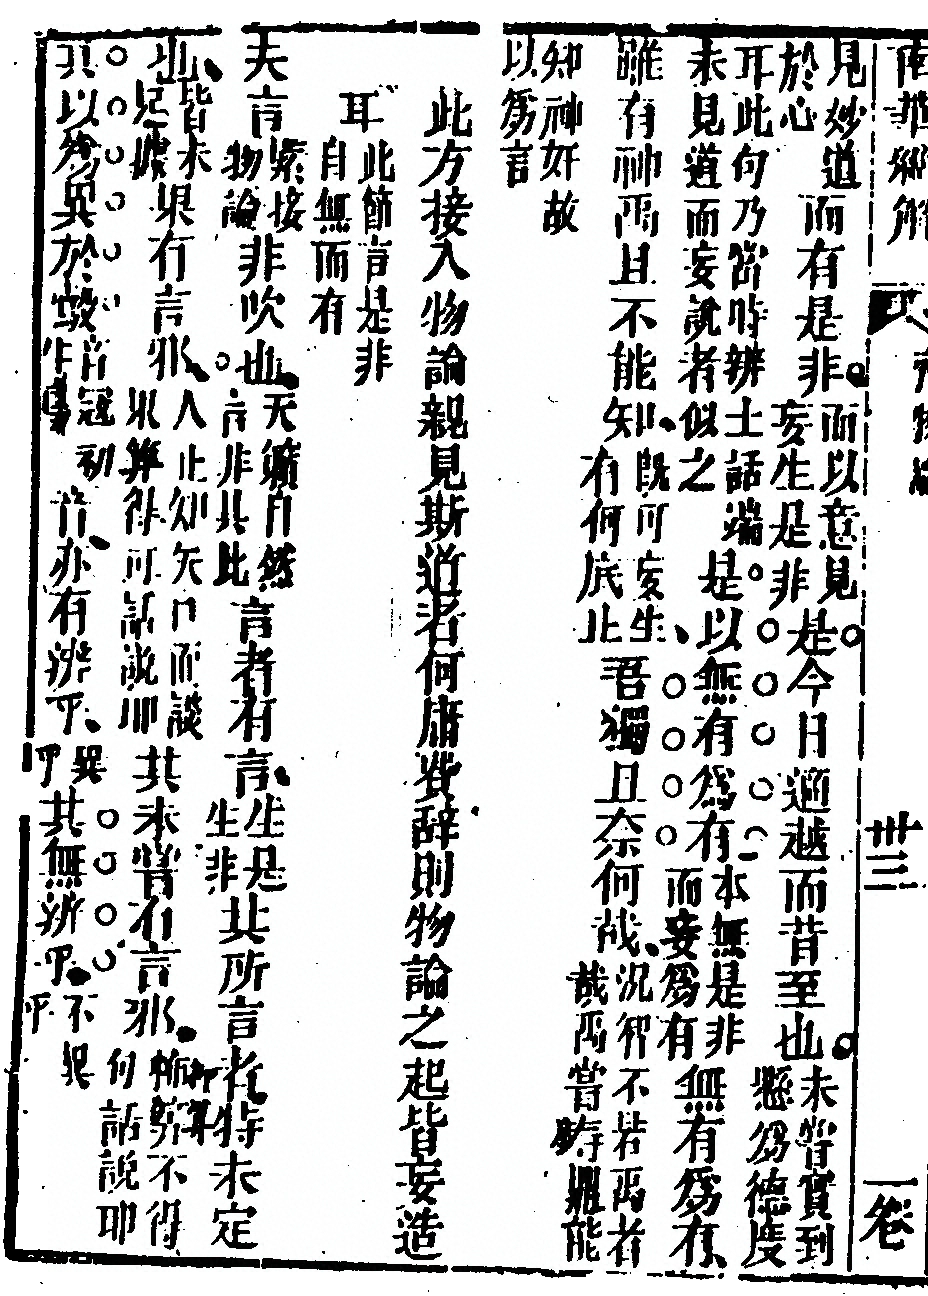 南華經解
卅三
一卷
見妙道
於心
而有是非
而以意見
妄生是非
是今日適越而昔至也
未嘗實到
懸為德度
耳此句乃當時辨士話端
未見道而妄說者似之
是以無有為有
本無是非
而妄為有
無有為有
雖有神禹且不能知
既可妄生
有何底止
吾獨且奈何哉
況智不若禹者
哉禹嘗鑄鼎能
知神奸故
以為言
此方接入物論親見斯道者何庸費辭則物論之起皆妄造
耳
此節言是非
自無而有
夫言
緊接
物論
非吹也
天籟自然
言非其比
言者有言
生是
生非
其所言者特未定
也
皆未
足據
果有言邪
人止知矢口而談
果算得可話說耶
其未嘗有言邪
抑算不得
何話說耶
其以為異於鷇
音
亦有辨乎
異
乎
其無辨乎
不異
乎